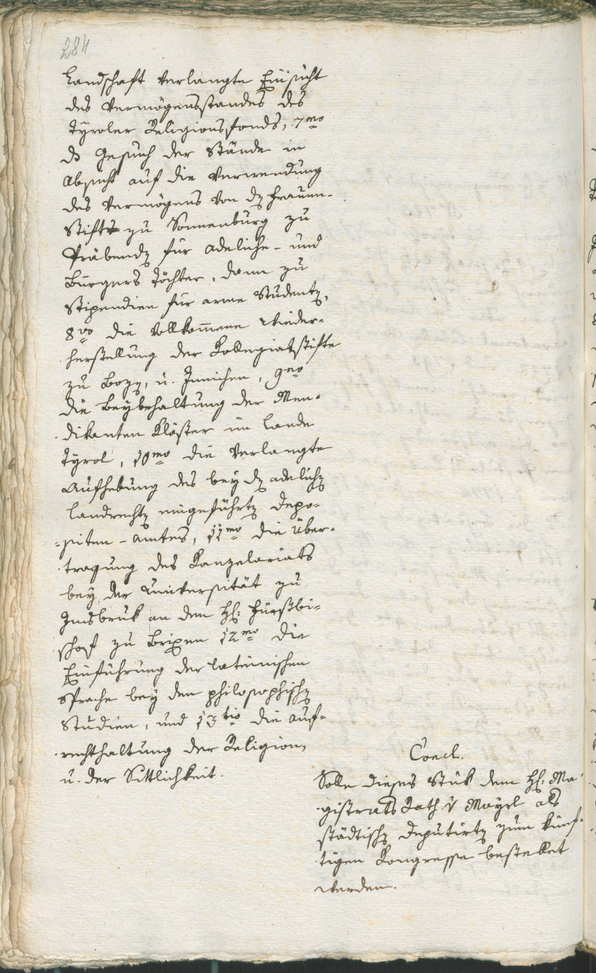 284
Landschaft verlangte Einsicht
des Vermögensstandes des
Tyroler Religionsfonds, 7mo
d Gesuch der Stände in
Absicht auf die Verwendung
des Vermögens von dz Frauen-
Stifte zu Sonnenburg zu
Präbendz für adeliche- und
Bürgers Töchter, dann zu
Stipendien für arme Studentz,
8vo die vollkommene Wieder-
herstellung der Kollegiatstifte
zu Bozz, u. Innichen, 9no
die Beybehaltung der Men-
dikanten Klöster im Lande
Tyrol, 10mo die verlangte
Aufhebung des bey dz adelichz
Landrechtz eingeführtz Depo-
siten-Amtes, 11mo die Über-
tragung des Kanzelariats
bey der Universität zu
Innsbruk an den H: Fürstbi-
schof zu Brixen 12mo die
Einführung der lateinischen
Sprache bey den philosophischz
Studien, und 13tio die Auf-
rechthaltung der Religion,
u. der Sittlichkeit.
Concl.
Solle dieses Stük dem H: Ma-
gistrats Rath v Mayrl als
städtischz Deputirtz zum künf-
tigen Kongresse bestellet
werden.